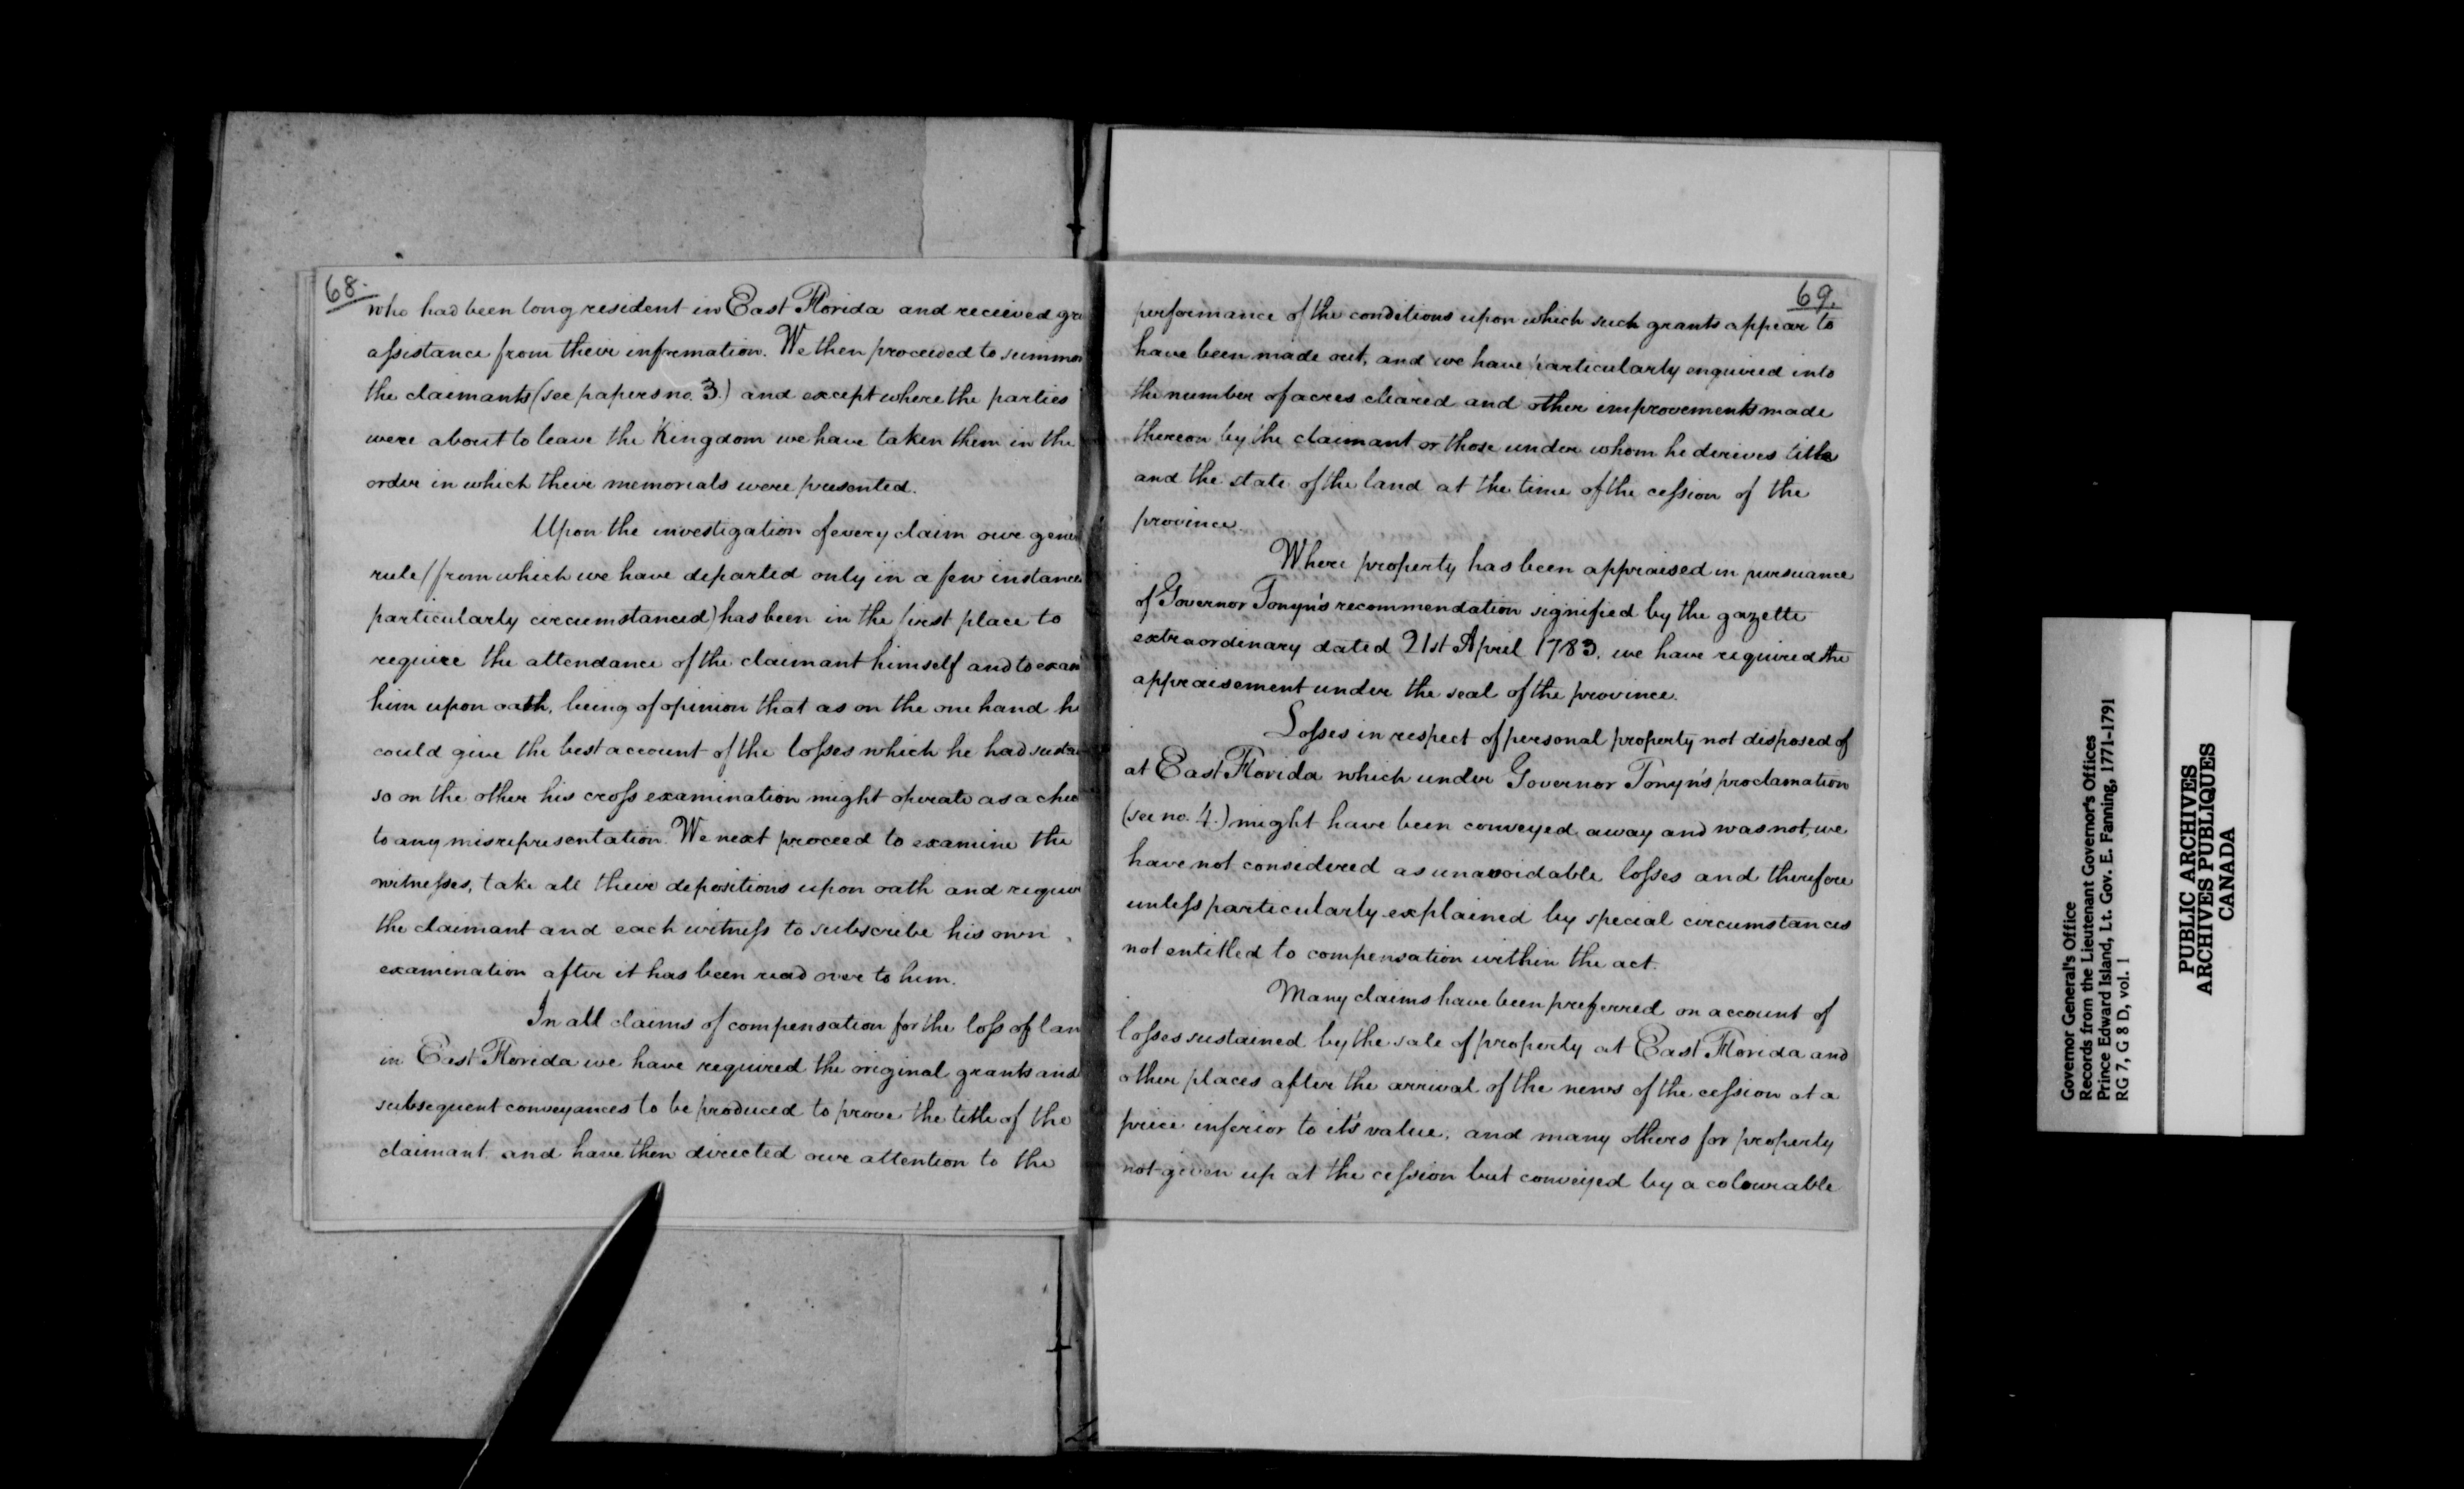 68.
who had been long resident in East Florida and recieved gre
assistance from their information. We then proceeded to summon
the claimants (see papers no. 3.) and except where the parties
were about to leave the Kingdom we have taken them in the
order in which their memorials were presented.
Upon the investigation of every claim our gener
rule (from which we have departed only in a few instances
particularly circumstanced) has been in the first place to
require the attendance of the claimant himself and to exam
him upon oath, being of opinion that as on the one hand he
could give the best account of the losses which he had susta
so on the other his cross examination might operate as a chec
to any misrepresentation. We next proceed to examine the
witnesses, take all their depositions upon oath and require
the claimant and each witness to subscribe his own
examination after it has been read over to him.
In all claims of compensation for the loss of lan
in East Florida we have required the original grants and
subsequent conveyances to be produced to prove the title of the
claimant and have then directed our attention to the
69.
performance of the conditions upon which such grants appear to
have been made out, and we have particularly enquired into
the number of acres cleared and other improvements made
thereon by the claimant or those under whom he derives title
and the state of the land at the time of the cession of the
province.
Where property has been appraised in pursuance
of Governor Tonyn's recommendation signified by the gazette
extraordinary dated 21st April 1783. we have required the
appraisement under the seal of the province.
Losses in respect of personal property not disposed of
at East Florida which under Governor Tonyn's proclamation
(see no. 4.) might have been conveyed away and was not, we
have not considered as unavoidable losses and therefore
unless particularly explained by special circumstances
not entitled to compensation within the act.
Many claims have been preferred on account of
losses sustained by the sale of property at East Florida and
other places after the arrival of the news of the cession at a
price inferior to it's value, and many others for property
not given up at the cession but conveyed by a colourable
Governor General's Office
Records from the Lieutenant Governor's Offices
Prince Edward Island, Lt. Gov. E. Fanning, 1771-1791
RG 7, G 8 D, vol. 1
PUBLIC ARCHIVES
ARCHIVES PUBLIQUES
CANADA